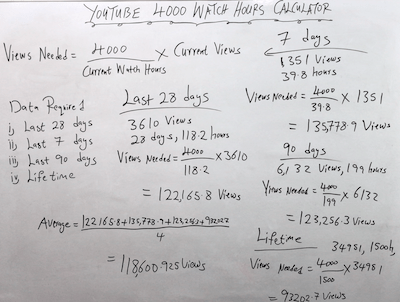 YOUTUBE 4000 WATCH HOURS CALCULATOR
Views Needed = 4000 / Current Watch Hours × Current Views
Data Required
i, Last 28 days
ii, Last 7 days
iii, Last 90 days
iv, Lifetime
Last 28 days
3610 Views
28 days, 118.2 hours
Views Needed = 4000 / 118.2 × 3610
= 122,165.8 Views
7 days
1351 Views
39.8 hours
Views Needed = 4000 / 39.8 × 1351
= 135,778.9 Views
90 days
6,132 Views, 199 hours
Views Needed = 4000 / 199 × 6132
= 123,256.3 Views
Lifetime
34951, 1500h,
Views Needed = 4000 / 1500 × 34951
= 93202.7 Views
Average = 122165.8 + 135,778.9 + / 4
= 118,600.925 Views